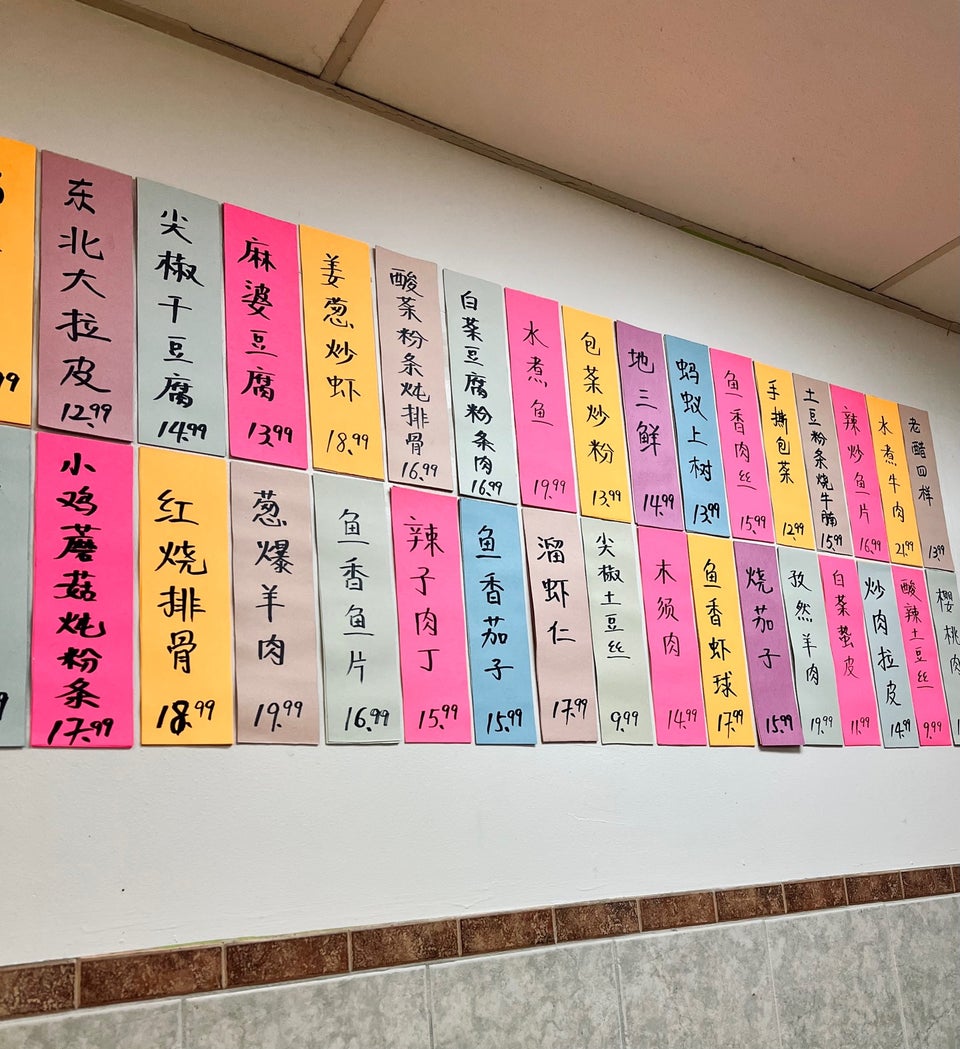 东北大拉皮
12.99
尖椒干豆腐
14.99
麻婆豆腐
13.99
姜葱炒虾
18.99
酸菜粉条炖排骨
16.99
白菜豆腐粉条肉
16.99
水煮鱼
19.99
包菜炒粉
13.99
地三鲜
14.99
蚂蚁上树
13.99
鱼香肉丝
15.99
手撕包菜
12.99
土豆粉条烧牛腩
15.99
辣炒鱼片
16.99
水煮牛肉
21.99
老醋四样
13.99
小鸡蘑菇炖粉条
17.99
红烧排骨
18.99
葱爆羊肉
19.99
鱼香鱼片
16.99
辣子肉丁
15.99
鱼香茄子
15.99
溜虾仁
17.99
尖椒土豆丝
9.99
木须肉
14.99
鱼香虾球
17.99
烧茄子
15.99
孜然羊肉
19.99
白菜蜇皮
11.99
炒肉拉皮
14.99
酸辣土豆丝
9.99
樱桃肉